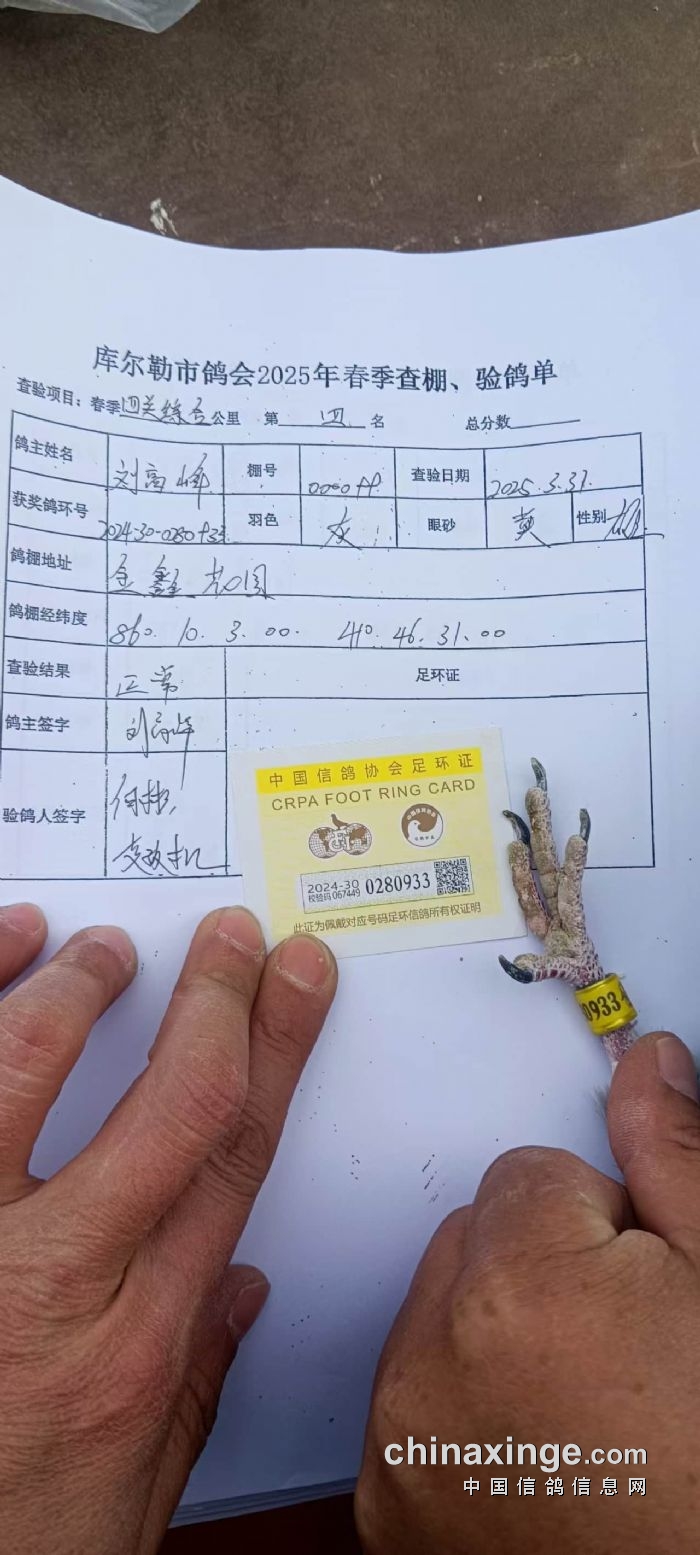 库尔勒市鸽会2025年春季查棚、验鸽单
查验项目：春季四关综合公里 第 四 名 总分数
鸽主姓名 刘高峰 棚号 查验日期 2025.3.31.
获奖鸽环号 2024-30-0280933 羽色 灰 眼砂 黄 性别 雄
鸽棚地址 金鑫花园
鸽棚经纬度 860. 10. 3. 00. 410. 46. 31. 00
查验结果 正常 足环证
鸽主签字 刘高峰
验鸽人签字
中国信鸽协会足环证
CRPA FOOT RING CARD
2024-30 0280933
校验码 067449
此证为佩戴对应号码足环信鸽所有权证明
0933
chinaxinge.com
中国信鸽信息网